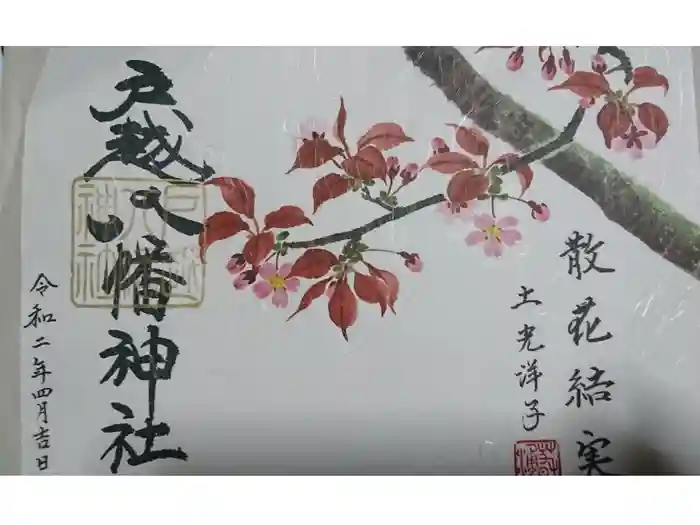 散花結実
土光洋子
戸越八幡神社
戸越八幡神社
令和二年四月吉日